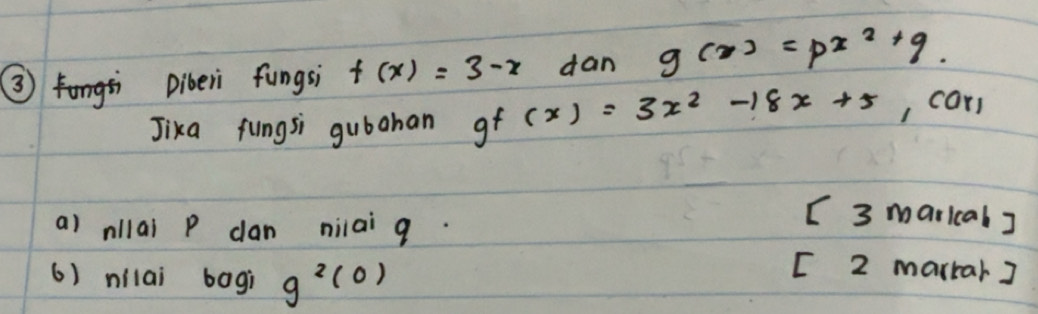 ③ fungsi Diberi fungsi f(x) = 3-x dan g(x) = px² + q.
Jika fungsi gubahan gf(x) = 3x² - 18x + 5, cari
a) nilai p dan nilai q. [3 markah]
b) nilai bagi g²(0) [2 markah]